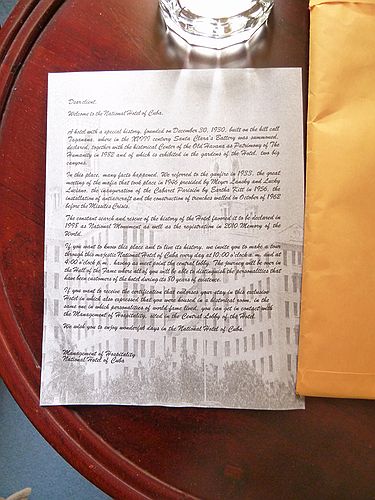 Dear client,
Welcome to the National Hotel of Cuba.
A hotel with a special history, founded on December 30, 1930, built on the hill call
Taganana, where in the XVIII century Santa Clara's Battery was summoned,
declared, together with the historical Center of the Old Havana as Patrimony of The
Humanity in 1982 and of which is exhibited in the gardens of the Hotel, two big
canyons.
In this place, many facts happened. We referred to the gunfire in 1933, the great
meeting of the mafia that took place in 1946 presided by Meyer Lansky and Lucky
Luciano, the inauguration of the Cabaret Parisien by Eartha Kitt in 1956, the
installation of antiaircraft and the construction of trenches walled in October of 1962
before the Missiles Crisis.
The constant search and rescue of the history of the Hotel favored it to be declared in
1998 as National Monument as well as the registration in 2010 Memory of the
World.
If you want to know this place and to live its history, we invite you to make a tour
through this majestic National Hotel of Cuba every day at 10:00 o'clock a.m. and at
4:00 o'clock p.m., having as meet point the central lobby. The touring will be over in
the Hall of the Fame where all of you will be able to distinguish the personalities that
have been customers of the hotel during its 80 years of existence.
If you want to receive the certification that endorses your stay in this exclusive
Hotel in which also expressed that you were housed in a historical room, in the
same one in which personalities of world fame lived, you can get in contact with
the Management of Hospitality, sited in the Central Lobby of the Hotel.
We wish you to enjoy wonderful days in the National Hotel of Cuba.
Management of Hospitality
National Hotel of Cuba.